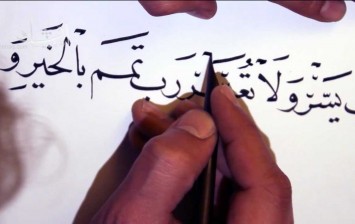 يسر ولا تعسر رب تمم بالخير و